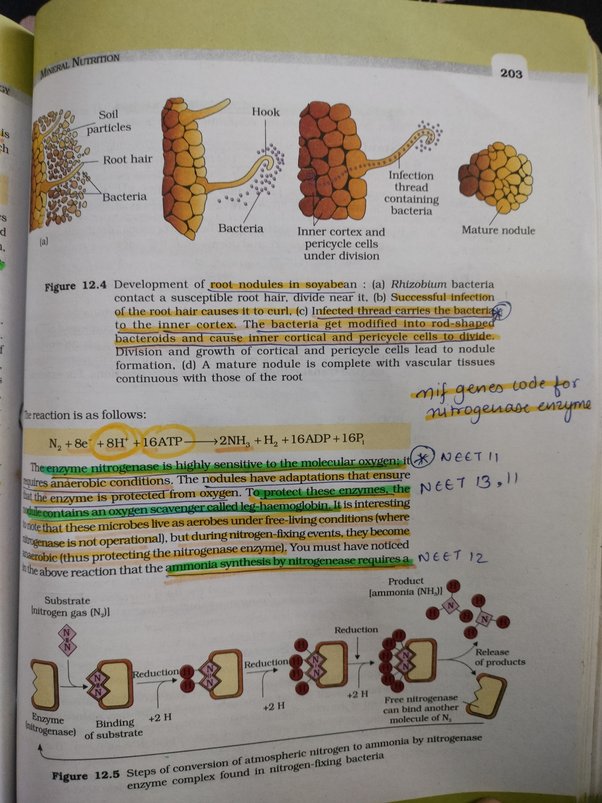 MINERAL NUTRITION
203
Soil
particles
Root hair
Bacteria
(a)
Hook
Bacteria
Infection
thread
containing
bacteria
Inner cortex and
pericycle cells
under division
Mature nodule
Figure 12.4 Development of root nodules in soyabean : (a) Rhizobium bacteria
contact a susceptible root hair, divide near it, (b) Successful infection
of the root hair causes it to curl, (c) Infected thread carries the bacteria
to the inner cortex. The bacteria get modified into rod-shaped
bacteroids and cause inner cortical and pericycle cells to divide.
Division and growth of cortical and pericycle cells lead to nodule
formation, (d) A mature nodule is complete with vascular tissues
continuous with those of the root
nif genes code for
nitrogenase enzyme
The reaction is as follows:
N₂ + 8e⁻ + 8H⁺ + 16ATP → 2NH₃ + H₂ + 16ADP + 16Pᵢ
The enzyme nitrogenase is highly sensitive to the molecular oxygen; it
requires anaerobic conditions. The nodules have adaptations that ensure
that the enzyme is protected from oxygen. To protect these enzymes, the
nodule contains an oxygen scavenger called leg-haemoglobin. It is interesting
to note that these microbes live as aerobes under free-living conditions (where
nitrogenase is not operational), but during nitrogen-fixing events, they become
anaerobic (thus protecting the nitrogenase enzyme). You must have noticed
in the above reaction that the ammonia synthesis by nitrogenease requires a
NEET 11
NEET 13, 11
NEET 12
Substrate
[nitrogen gas (N₂)]
Product
[ammonia (NH₃)]
N
N
H
Reduction
Reduction
Reduction
+2 H
+2 H
+2 H
Release
of products
Enzyme
(nitrogenase)
Binding
of substrate
Free nitrogenase
can bind another
molecule of N₂
Figure 12.5 Steps of conversion of atmospheric nitrogen to ammonia by nitrogenase
enzyme complex found in nitrogen-fixing bacteria